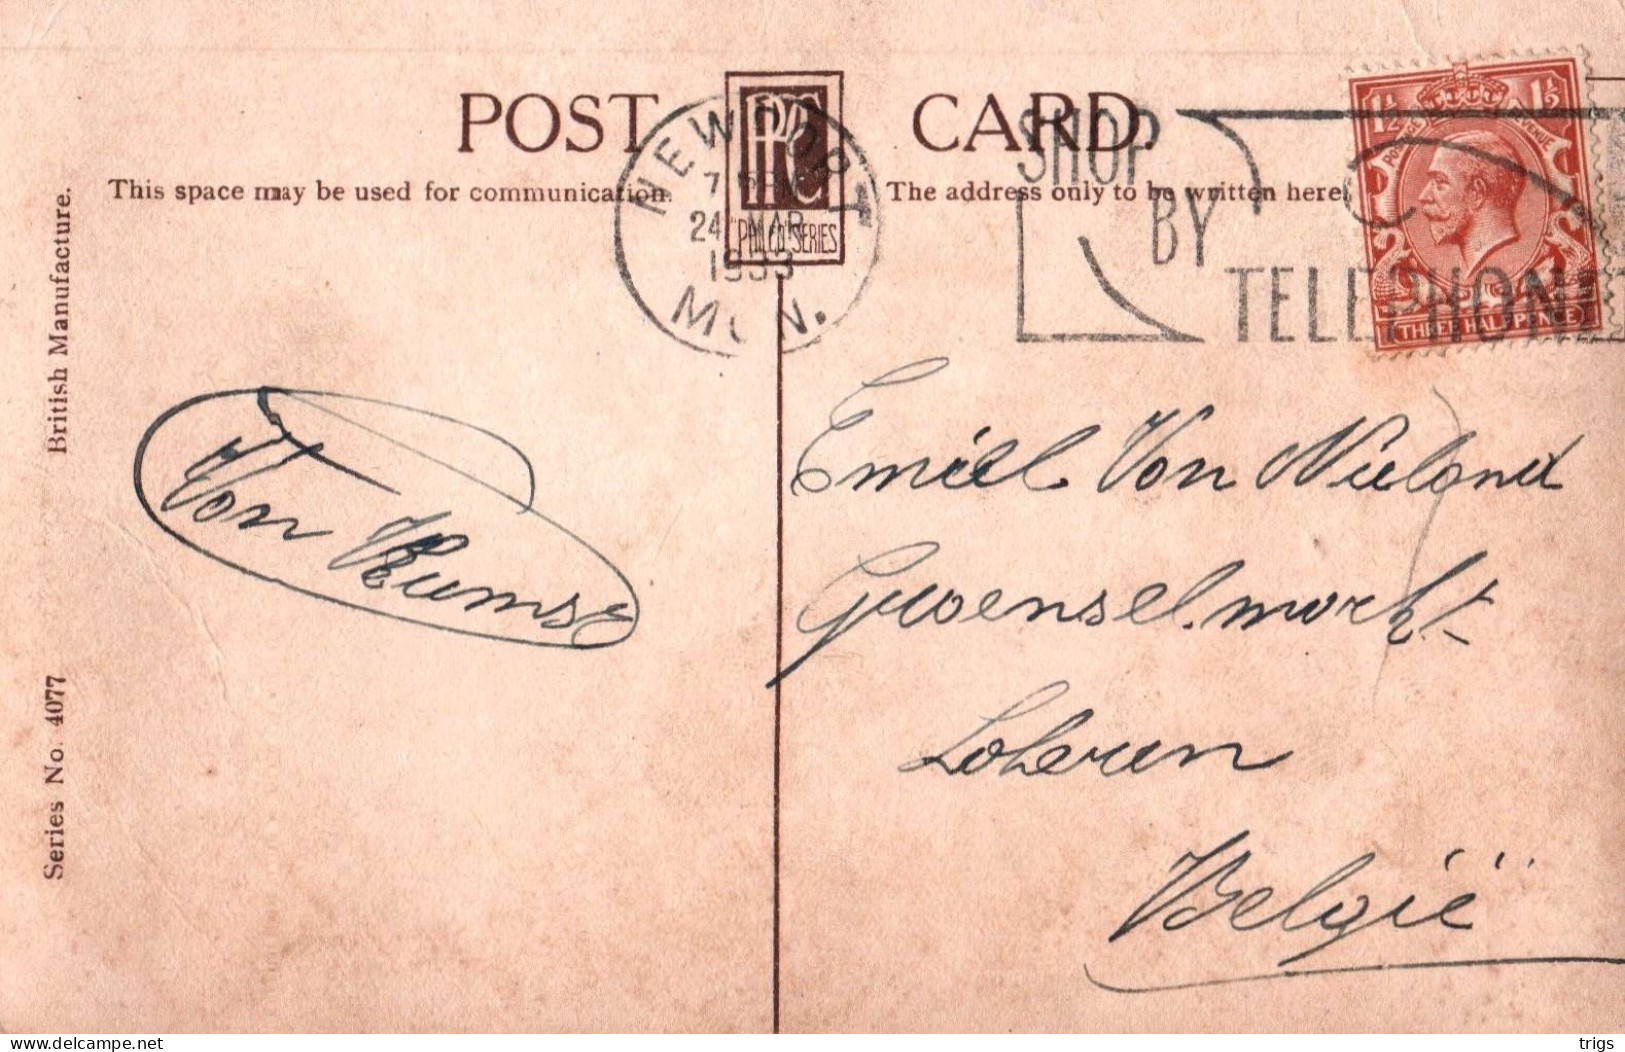 POST CARD.
PPC
PHILCO SERIES
This space may be used for communication.
The address only to be written here.
NEWPORT
7 PM
24 MAR
1933
MON.
SHOP
BY
TELEPHONE
1½ 1½
POSTAGE REVENUE
THREE HALFPENCE
British Manufacture.
Series No. 4077
Von
Emiel Von Nieland
Groensel.morkt
Lokeren
België
delcampe.net
trigs